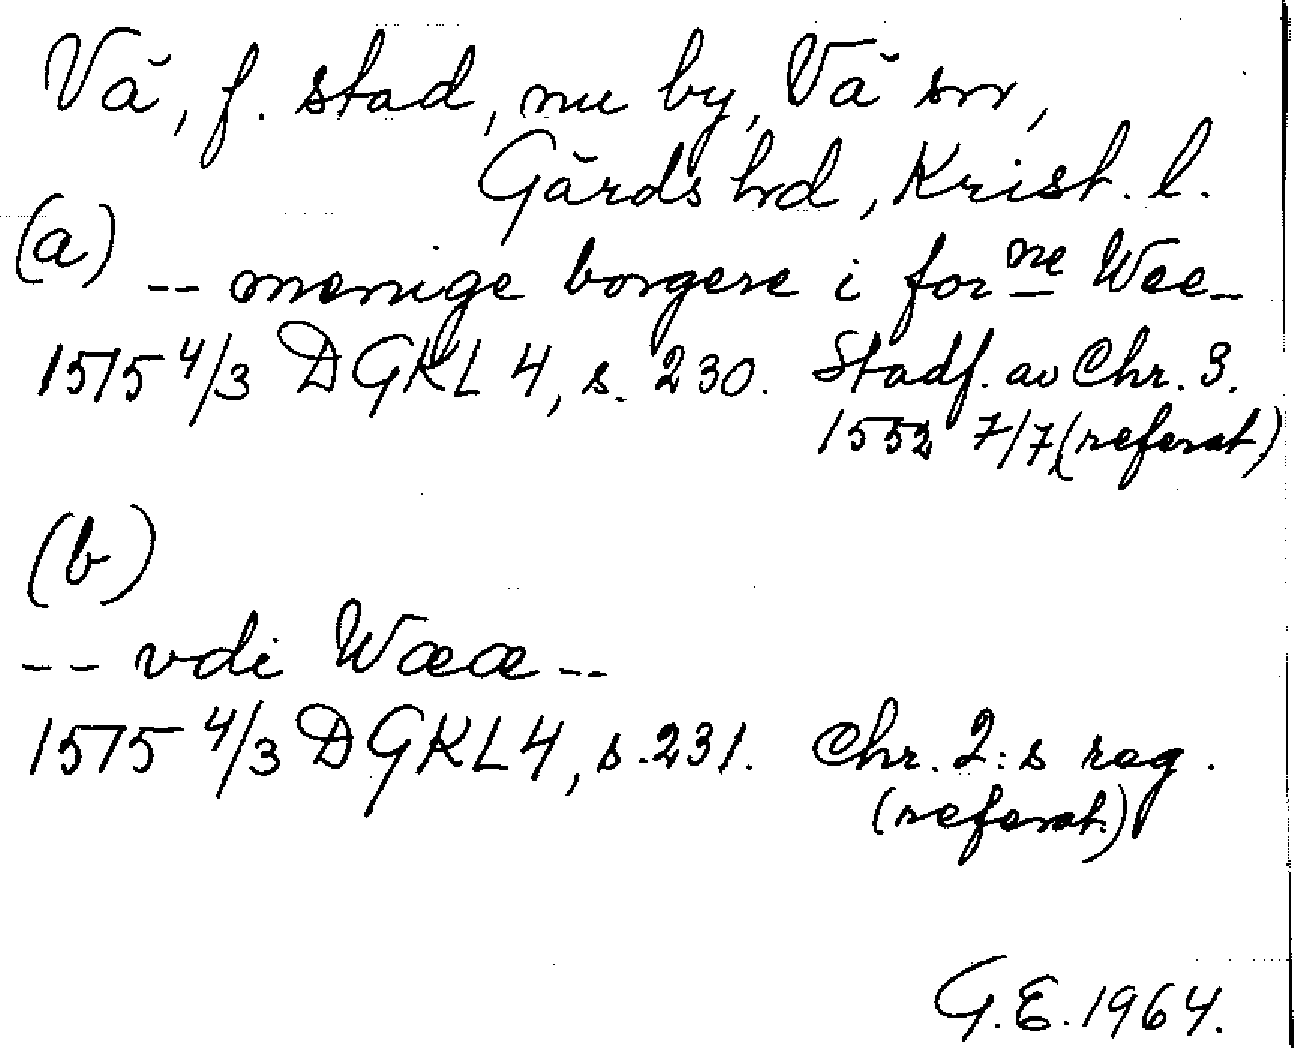 Vä, f. stad, nu by, Vä sn,
Gärds hd, Krist. l.
(a) -- menige borgere i for ne Wee --
1575 4/3 DGKL 4, s. 230. Stadf. av Chr. 3.
1552 7/7 (referat)
(b)
-- vdi Wææ --
1575 4/3 DGKL 4, s. 231. Chr. 2:s reg.
(referat)
G.E. 1964.